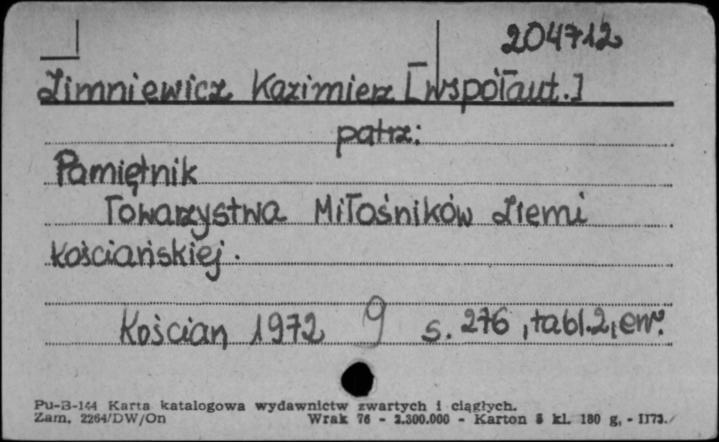 204712
Zimniewicz Kazimierz [współaut.]
patrz:
Pamiętnik
Towarzystwa Miłośników Ziemi
Kościańskiej.
Kościan 1972 9 s. 276, tabl. 2, err.
Pu-B-144 Karta katalogowa wydawnictw zwartych i ciągłych.
Zam. 2264/DW/On Wrak 76 - 2.300.000 - Karton 5 kl. 180 g. - II73.